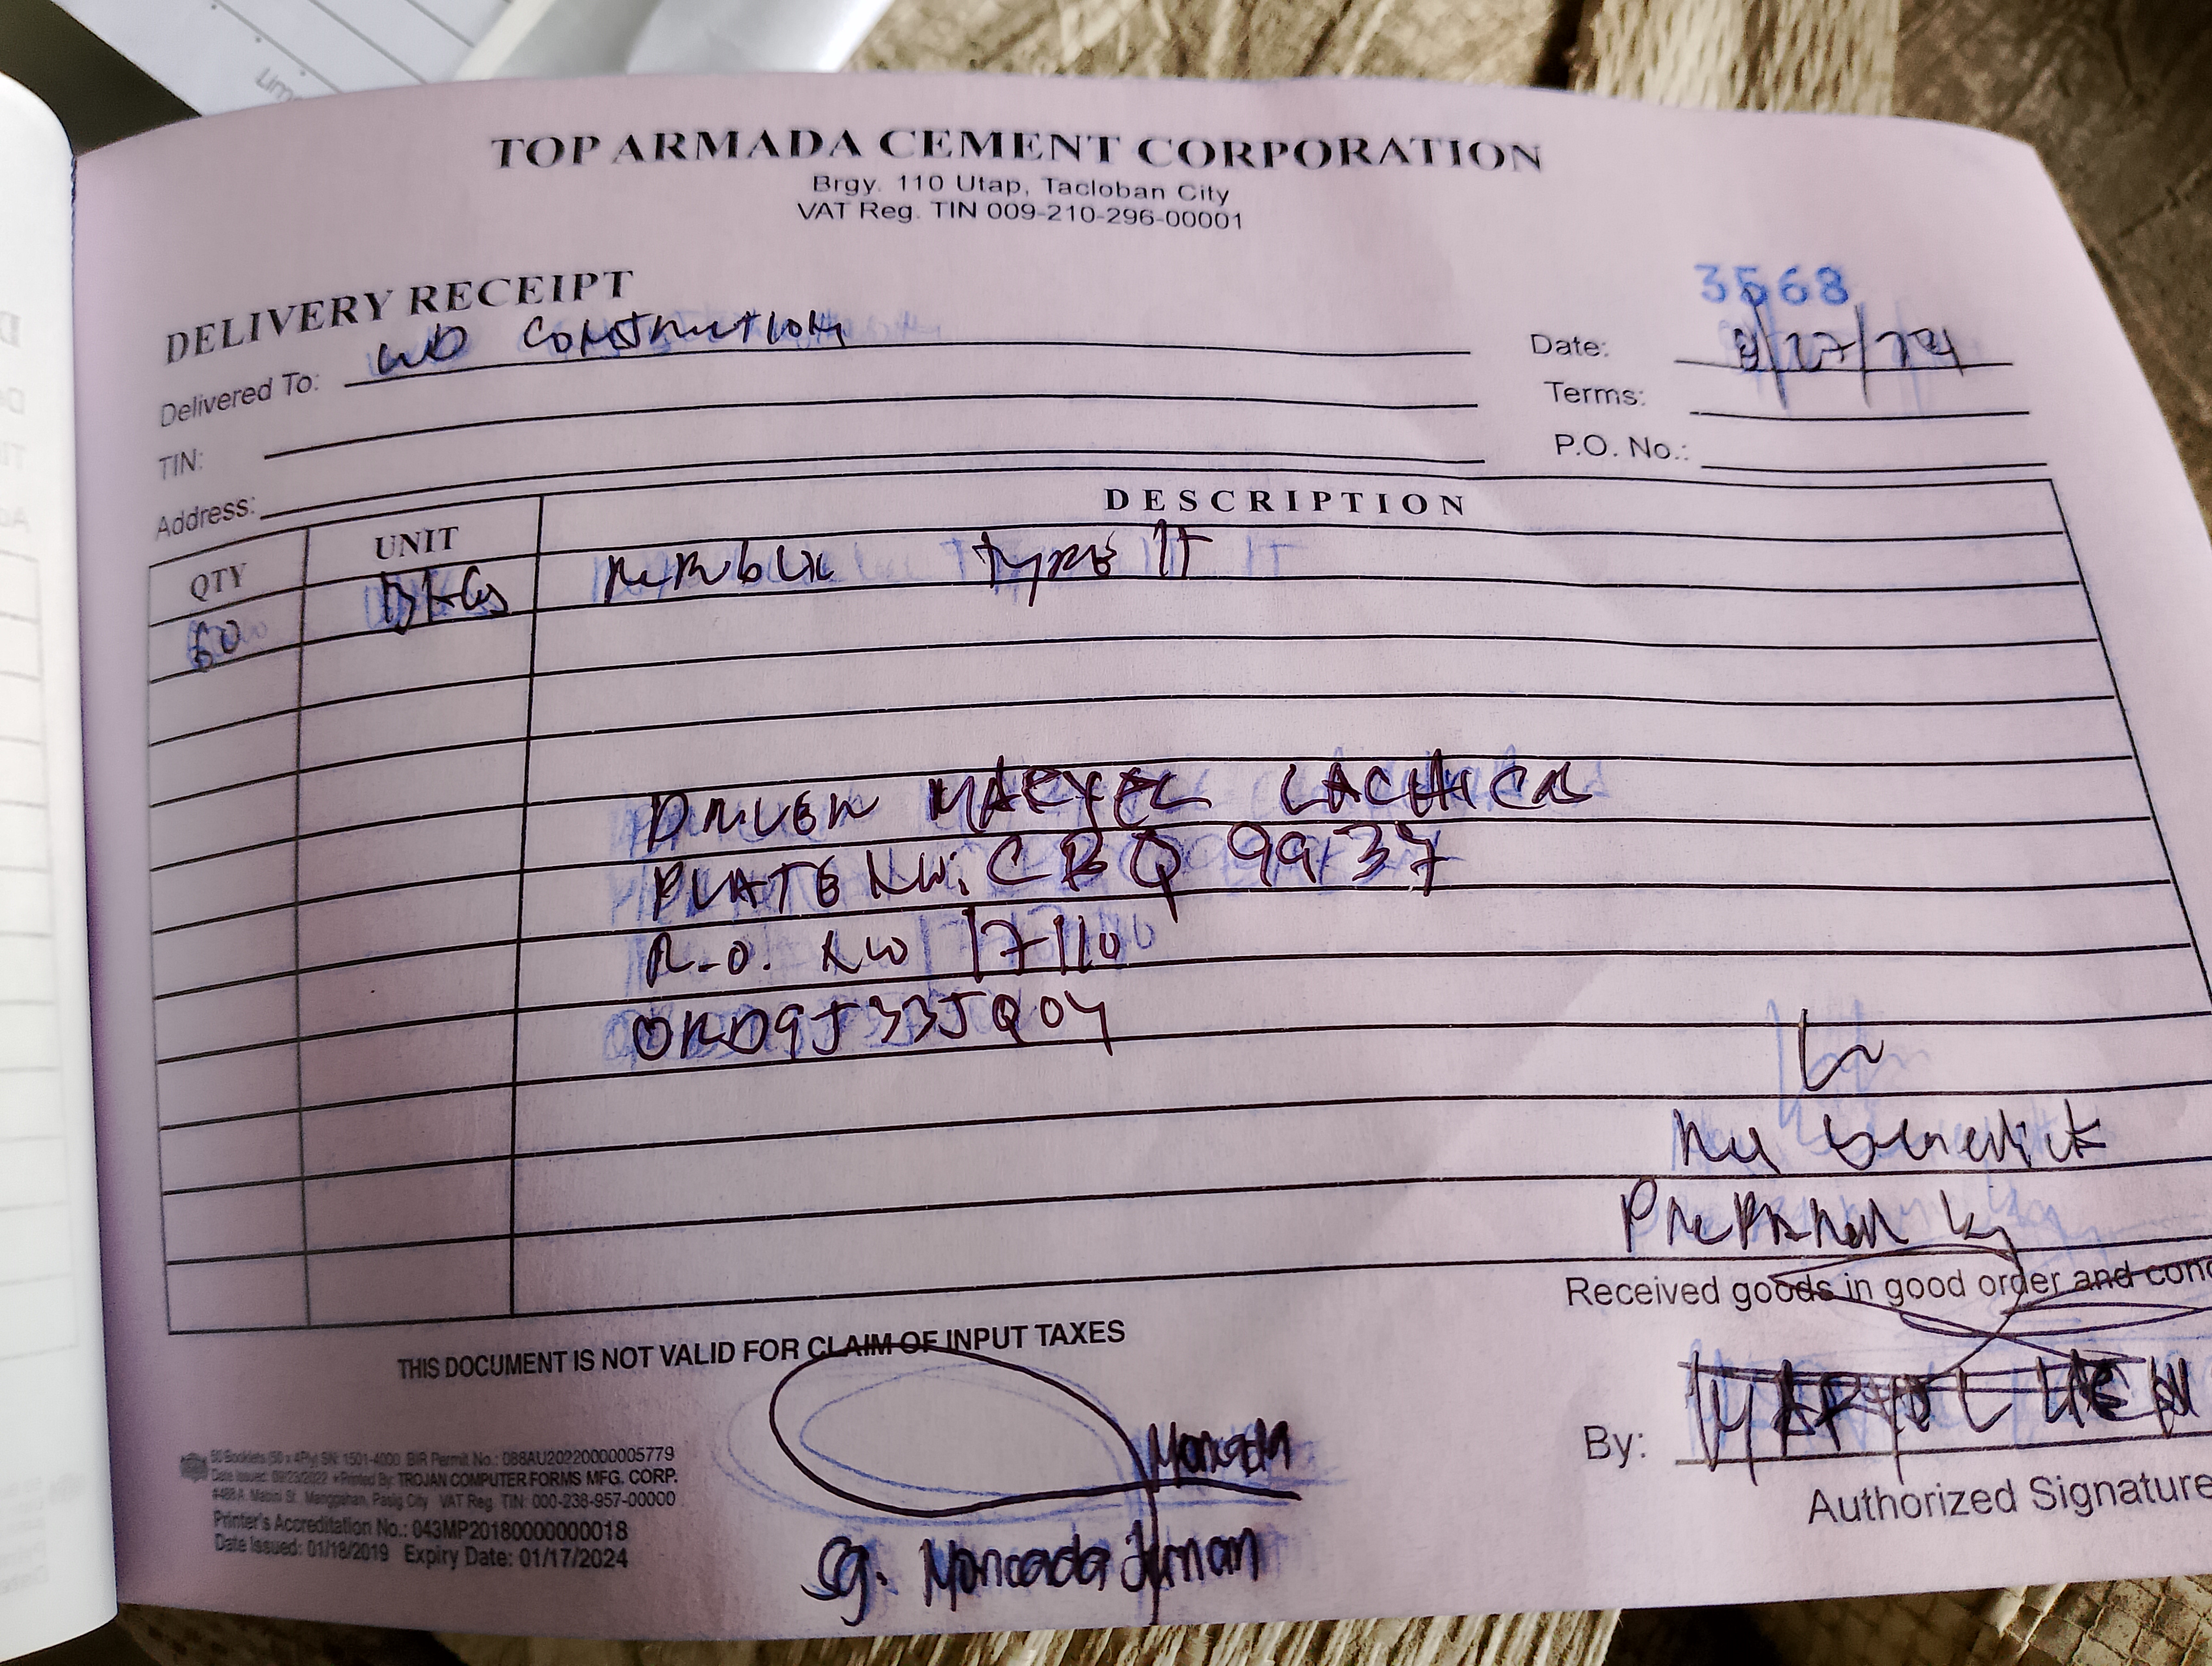 TOP ARMADA CEMENT CORPORATION
Brgy. 110 Utap, Tacloban City
VAT Reg. TIN 009-210-296-00001
DELIVERY RECEIPT
3568
Delivered To: WD CONSTRUCTION
Date: /27/24
TIN:
Terms:
Address:
P.O. No.:
QTY UNIT DESCRIPTION
60 BAGS REPUBLIC TYPE 1T
DRIVER LACHICA
PLATE NO: CBQ 9937
R.O. NO 17110
ORD9J33JQ04
Benedict
Prepared by
Received goods in good order and cond
THIS DOCUMENT IS NOT VALID FOR CLAIM OF INPUT TAXES
Moncada
By:
Authorized Signature
Sg. Moncada
50 Booklets (50 x 4Ply) SN: 1501-4000 BIR Permit No.: 088AU20220000005779
Date Issued: 09/23/2022 Printed By: TROJAN COMPUTER FORMS MFG. CORP.
#488 A. Mabini St. Manggahan, Pasig City VAT Reg. TIN: 000-238-957-00000
Printer's Accreditation No.: 043MP20180000000018
Date Issued: 01/18/2019 Expiry Date: 01/17/2024